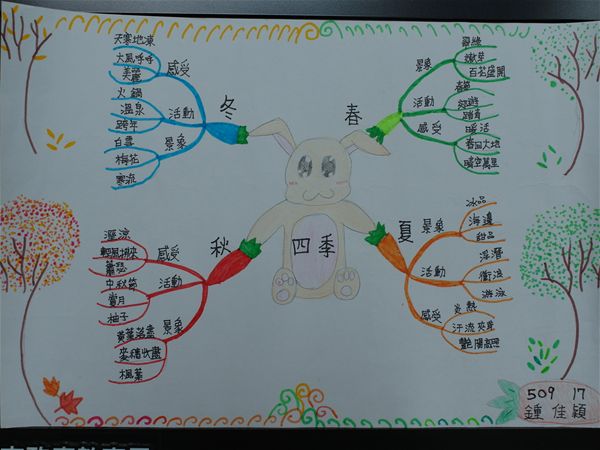 天寒地凍
大風呼呼
美麗
感受
火鍋
溫泉
跨年
活動
白雪
梅花
寒流
景象
冬
春
景象
翠綠
嫩芽
百花盛開
活動
春節
踏青
感受
暖活
春回大地
晴空萬里
四季
秋
感受
涼
輕風拂來
蕭瑟
活動
中秋節
賞月
柚子
景象
黃葉落盡
麥穗收盡
楓葉
夏
景象
冰品
海邊
甜品
活動
浮潛
衝浪
游泳
感受
炎熱
汗流夾背
艷陽高照
509 17
鍾佳穎